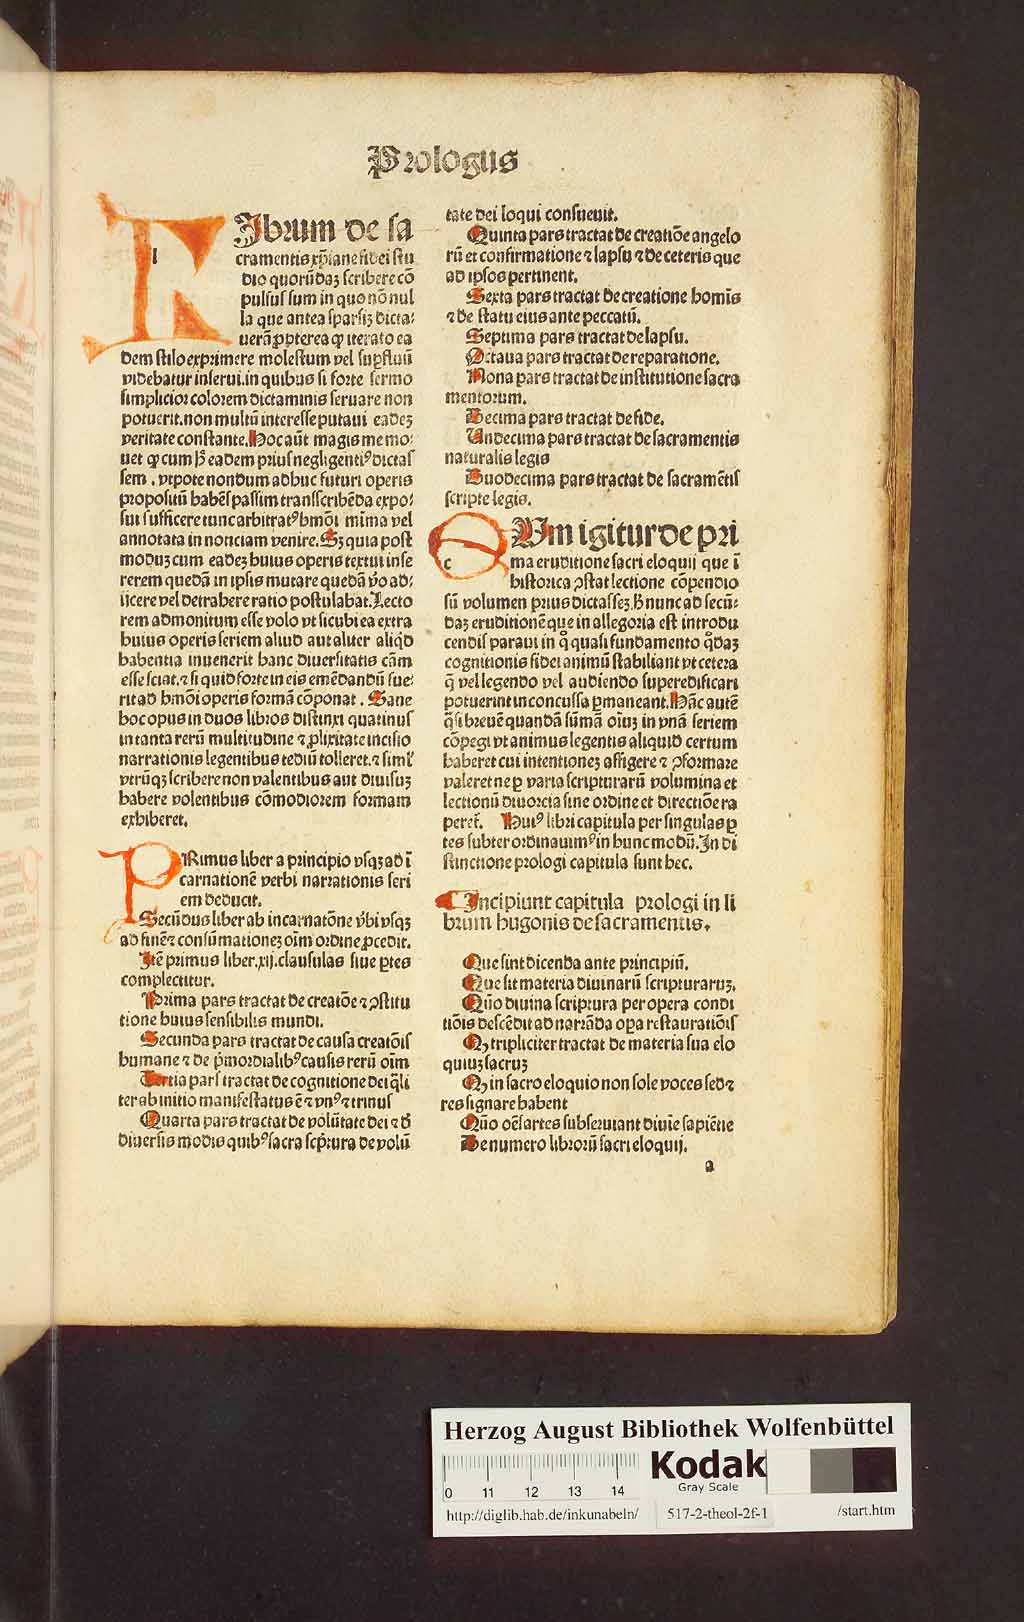 Prologus
LIbrum de sa
cramentis xp̃iane fidei stu
dio quorũdaz scribere cõ
pulsus sum in quo nõ nul
la que antea sparsiz dicta-
uerã ꝓpterea ꝙ iterato ea
dem stilo exprimere molestum vel suꝑfluũ
videbatur inserui. in quibus si forte sermo
simplicior colorem dictaminis seruare non
potuerit. non multũ interesse putaui eadez
veritate constante. Hoc aũt magis me mo-
uet ꝙ cum h̃ eadem prius negligentiꝰ dictas
sem . vtpote nondum adhuc futuri operis
propositũ habẽs passim transscribẽda expo-
sui sufficere tunc arbitratꝰ hmõi mĩma vel
annotata in noticiam venire. Sz quia post
moduz cum eadez huius operis textui inse
rerem quedã in ipsis mutare quedã ṽo ad-
ijcere vel detrahere ratio postulabat. Lecto
rem admonitum esse volo vt sicubi ea extra
huius operis seriem aliud aut aliter aliq̃d
habentia inuenerit hanc diuersitatis cãm
esse sciat. ⁊ si quid forte in eis emẽdandũ fue-
rit ad hmõi operis formã cõponat . Sane
hoc opus in duos libros distinxi quatinus
in tanta rerũ multitudine ⁊ ꝓlixitate incisio
narrationis legentibus tediũ tolleret. ⁊ siml̛
vtrũqz scribere non valentibus aut diuisuz
habere volentibus cõmodiorem formam
exhiberet.
PRimus liber a principio vsqz ad ĩ
carnationẽ verbi narrationis seri
em deducit.
Secũdus liber ab incarnatõne ṽbi vsqz
ad finẽ ⁊ consũmationez oĩm ordine ꝓcedit.
Itẽ primus liber .xij. clausulas siue ꝑtes
complectitur.
Prima pars tractat de creatõe ⁊ ꝯstitu
tione huius sensibilis mundi.
Secunda pars tractat de causa creatõis
humane ⁊ de p̃mordialibꝰ causis rerũ oĩm
Tertia pars tractat de cognitione dei q̃li
ter ab initio manifestatus ẽ ⁊ vnꝰ ⁊ trinus
Quarta pars tractat de volũtate dei ⁊ ꝙ
diuersis modis quibꝰ sacra scp̃tura de volũ
tate dei loqui consueuit.
Quinta pars tractat de creatiõe angelo
rũ et confirmatione ⁊ lapsu ⁊ de ceteris que
ad ipsos pertinent.
Sexta pars tractat de creatione homĩs
⁊ de statu eius ante peccatũ.
Septima pars tractat de lapsu.
Octaua pars tractat de reparatione.
Nona pars tractat de institutione sacra
mentorum.
Decima pars tractat de fide.
Undecima pars tractat de sacramentis
naturalis legis
Duodecima pars tractat de sacramẽtis
scripte legis.
CUm igitur de pri
ma eruditione sacri eloquij que ĩ
historica ꝯstat lectione cõpendio
sũ volumen prius dictassez. h̃ nunc ad secũ-
daz eruditionẽ que in allegoria est introdu
cendis paraui in q̃ quasi fundamento q̃daz
cognitionis fidei animũ stabiliant vt cetera
q̃ vel legendo vel audiendo superedificari
potuerint inconcussa ꝑmaneant. Hãc autẽ
q̃si breuẽ quandã sũmã oĩuz in vnã seriem
cõpegi vt animus legentis aliquid certum
haberet cui intentionez affigere ⁊ ꝯformare
valeret ne ꝑ varia scripturarũ volumina et
lectionũ diuorcia sine ordine et directiõe ra
peret̃. Huiꝰ libri capitula per singulas ꝑ
tes subter ordinauimꝰ in hunc modũ. In di
stinctione prologi capitula sunt hec.
Incipiunt capitula prologi in li
brum hugonis de sacramentis.
Que sint dicenda ante principiũ.
Que sit materia diuinarũ scripturaruz.
Qũo diuina scriptura per opera condi
tiõis descẽdit ad narrãda oꝑa restauratiõis
Qꝫ tripliciter tractat de materia sua elo
quiuz sacruz
Qꝫ in sacro eloquio non sole voces sed ⁊
res signare habent
Qũo oẽs artes subseruiant diuĩe sapiẽtie
De numero librorũ sacri eloquij.
a
Herzog August Bibliothek Wolfenbüttel
0 11 12 13 14
Kodak
Gray Scale
http://diglib.hab.de/inkunabeln/ 517-2-theol-2f-1 /start.htm